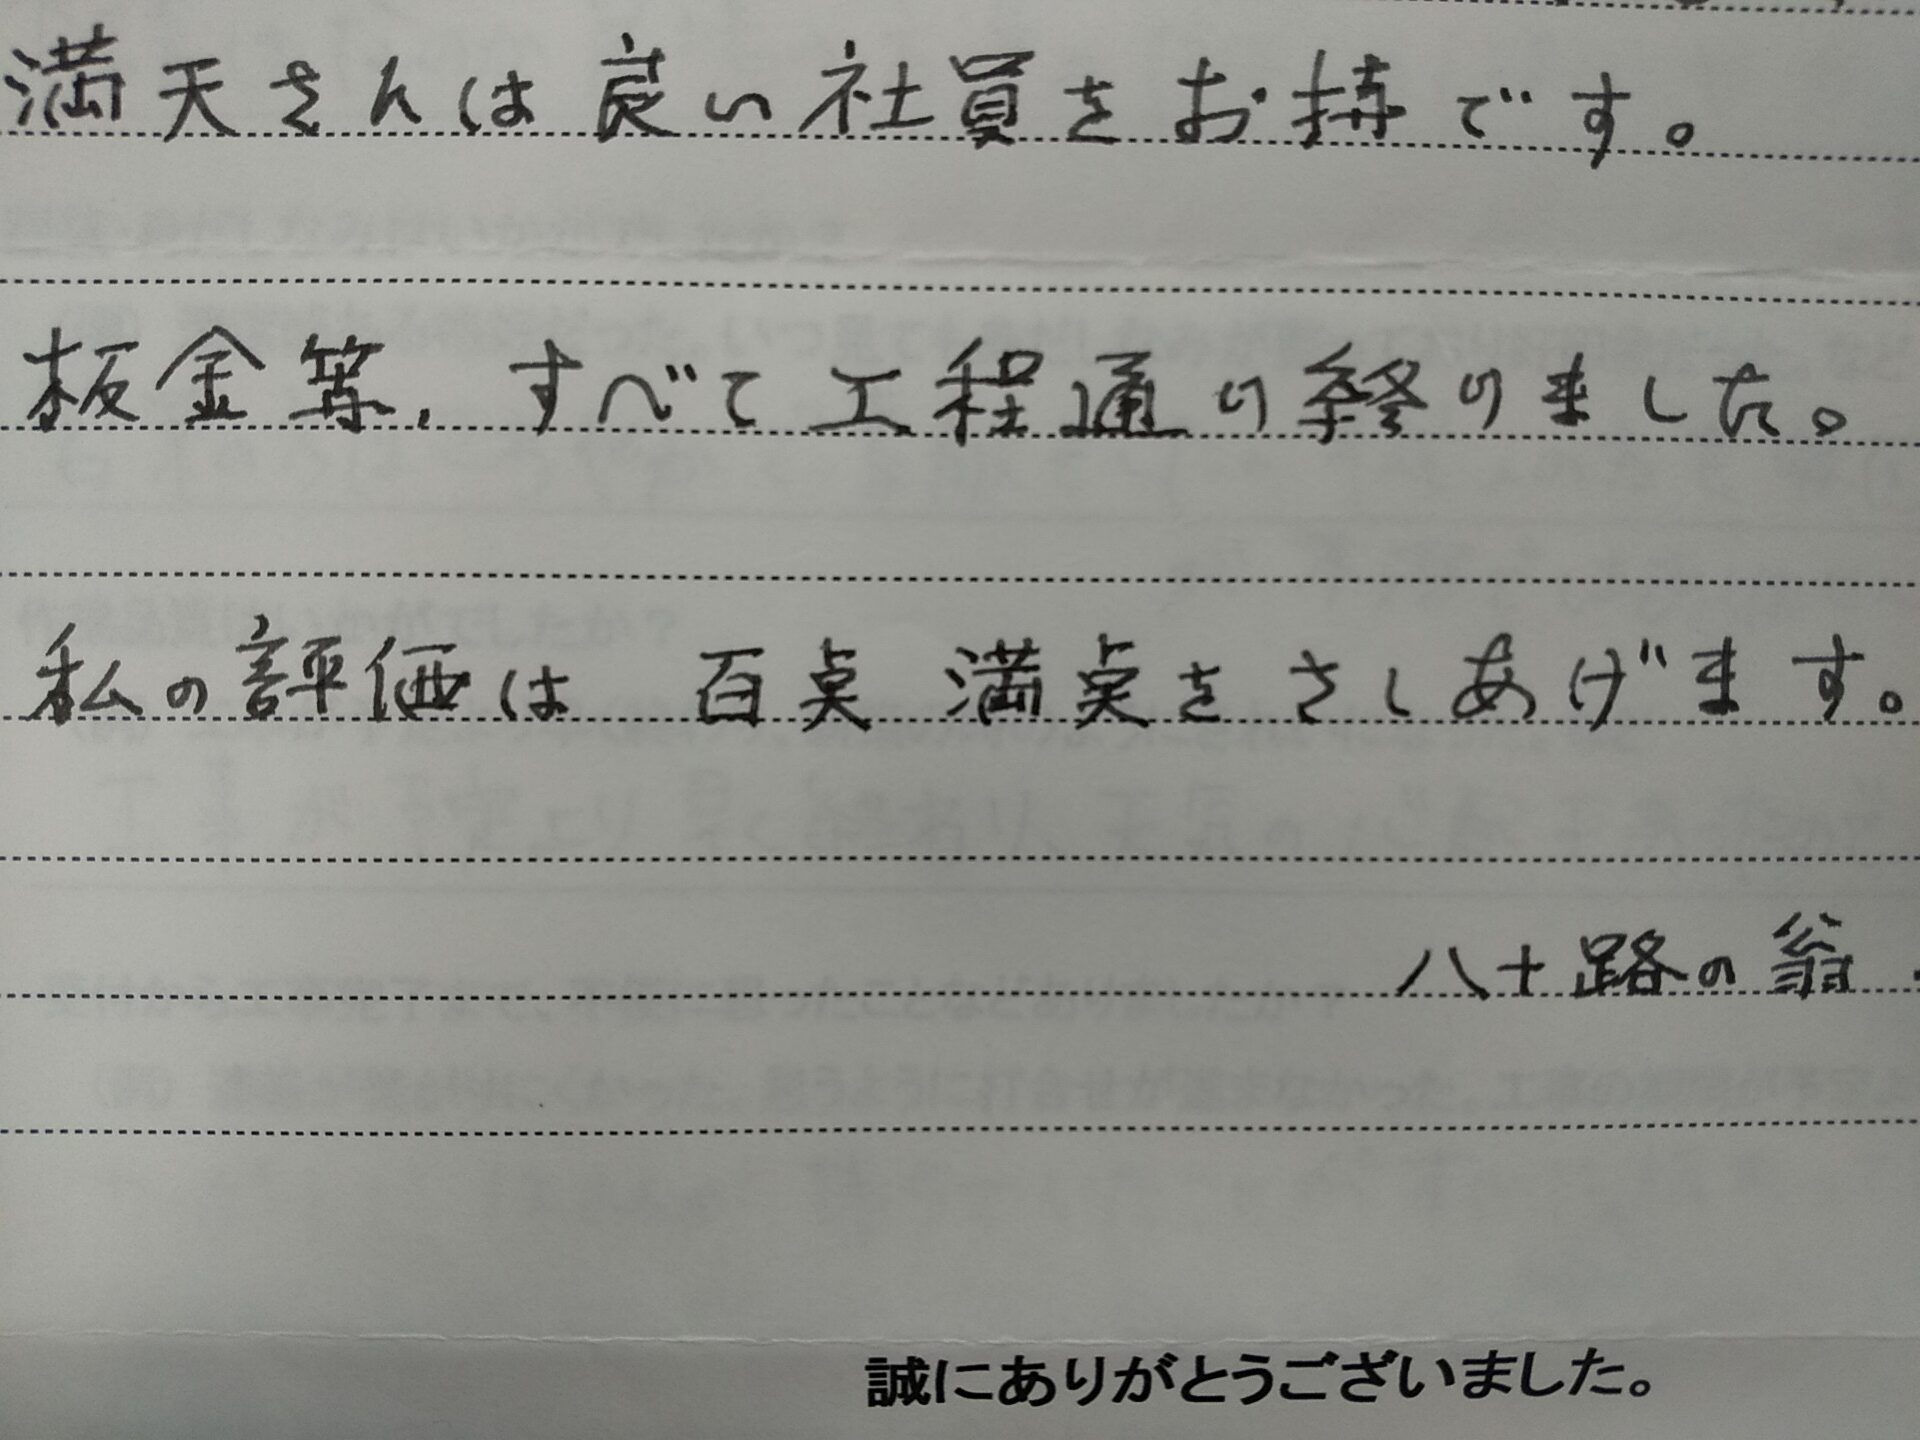 満天さんは良い社員をお持です。
板金等、すべて工程通り終りました。
私の評価は 百点 満点をさしあげます。
八十路の翁.
誠にありがとうございました。